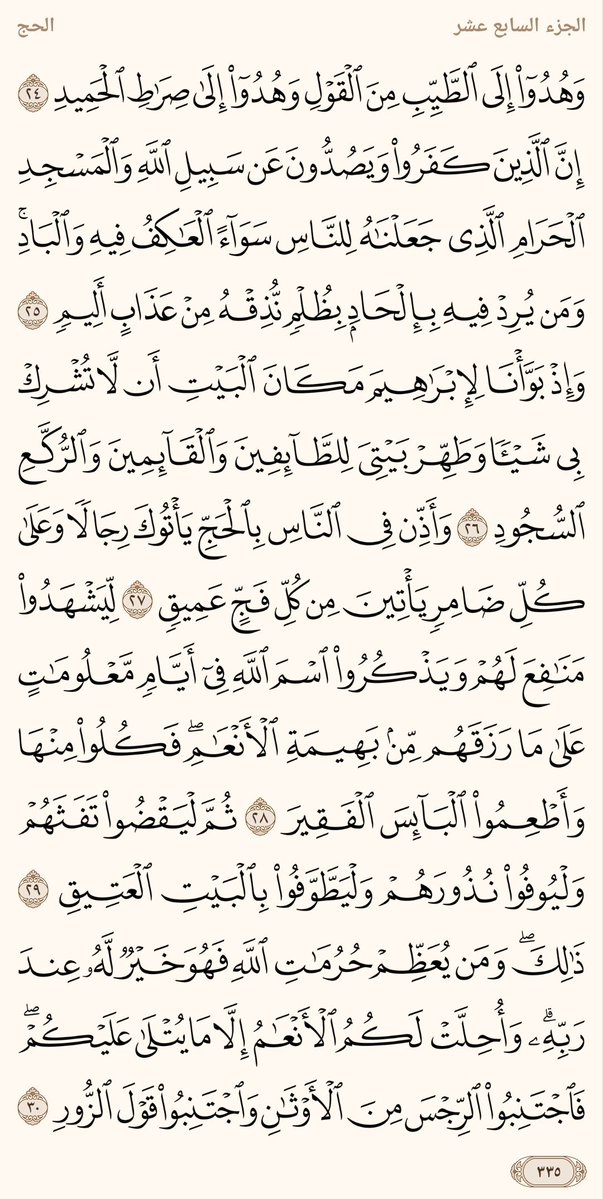 الجزء السابع عشر
الحج
وَهُدُوٓا۟ إِلَى ٱلطَّيِّبِ مِنَ ٱلْقَوْلِ وَهُدُوٓا۟ إِلَىٰ صِرَٰطِ ٱلْحَمِيدِ ٢٤
إِنَّ ٱلَّذِينَ كَفَرُوا۟ وَيَصُدُّونَ عَن سَبِيلِ ٱللَّهِ وَٱلْمَسْجِدِ
ٱلْحَرَامِ ٱلَّذِى جَعَلْنَٰهُ لِلنَّاسِ سَوَآءً ٱلْعَٰكِفُ فِيهِ وَٱلْبَادِ ۚ
وَمَن يُرِدْ فِيهِ بِإِلْحَادٍۭ بِظُلْمٍ نُّذِقْهُ مِنْ عَذَابٍ أَلِيمٍ ٢٥
وَإِذْ بَوَّأْنَا لِإِبْرَٰهِيمَ مَكَانَ ٱلْبَيْتِ أَن لَّا تُشْرِكْ
بِى شَيْـًٔا وَطَهِّرْ بَيْتِىَ لِلطَّآئِفِينَ وَٱلْقَآئِمِينَ وَٱلرُّكَّعِ
ٱلسُّجُودِ ٢٦ وَأَذِّن فِى ٱلنَّاسِ بِٱلْحَجِّ يَأْتُوكَ رِجَالًا وَعَلَىٰ
كُلِّ ضَامِرٍ يَأْتِينَ مِن كُلِّ فَجٍّ عَمِيقٍ ٢٧ لِّيَشْهَدُوا۟
مَنَٰفِعَ لَهُمْ وَيَذْكُرُوا۟ ٱسْمَ ٱللَّهِ فِىٓ أَيَّامٍ مَّعْلُومَٰتٍ
عَلَىٰ مَا رَزَقَهُم مِّنۢ بَهِيمَةِ ٱلْأَنْعَٰمِ ۖ فَكُلُوا۟ مِنْهَا
وَأَطْعِمُوا۟ ٱلْبَآئِسَ ٱلْفَقِيرَ ٢٨ ثُمَّ لْيَقْضُوا۟ تَفَثَهُمْ
وَلْيُوفُوا۟ نُذُورَهُمْ وَلْيَطَّوَّفُوا۟ بِٱلْبَيْتِ ٱلْعَتِيقِ ٢٩
ذَٰلِكَ ۖ وَمَن يُعَظِّمْ حُرُمَٰتِ ٱللَّهِ فَهُوَ خَيْرٌ لَّهُۥ عِندَ
رَبِّهِۦ ۗ وَأُحِلَّتْ لَكُمُ ٱلْأَنْعَٰمُ إِلَّا مَا يُتْلَىٰ عَلَيْكُمْ ۖ
فَٱجْتَنِبُوا۟ ٱلرِّجْسَ مِنَ ٱلْأَوْثَٰنِ وَٱجْتَنِبُوا۟ قَوْلَ ٱلزُّورِ ٣٠
٣٣٥